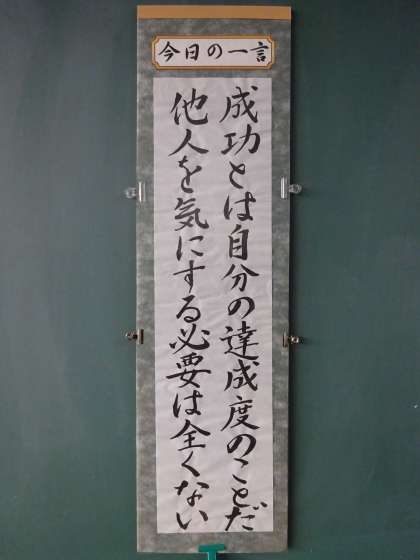 今日の一言
成功とは自分の達成度のことだ
他人を気にする必要は全くない